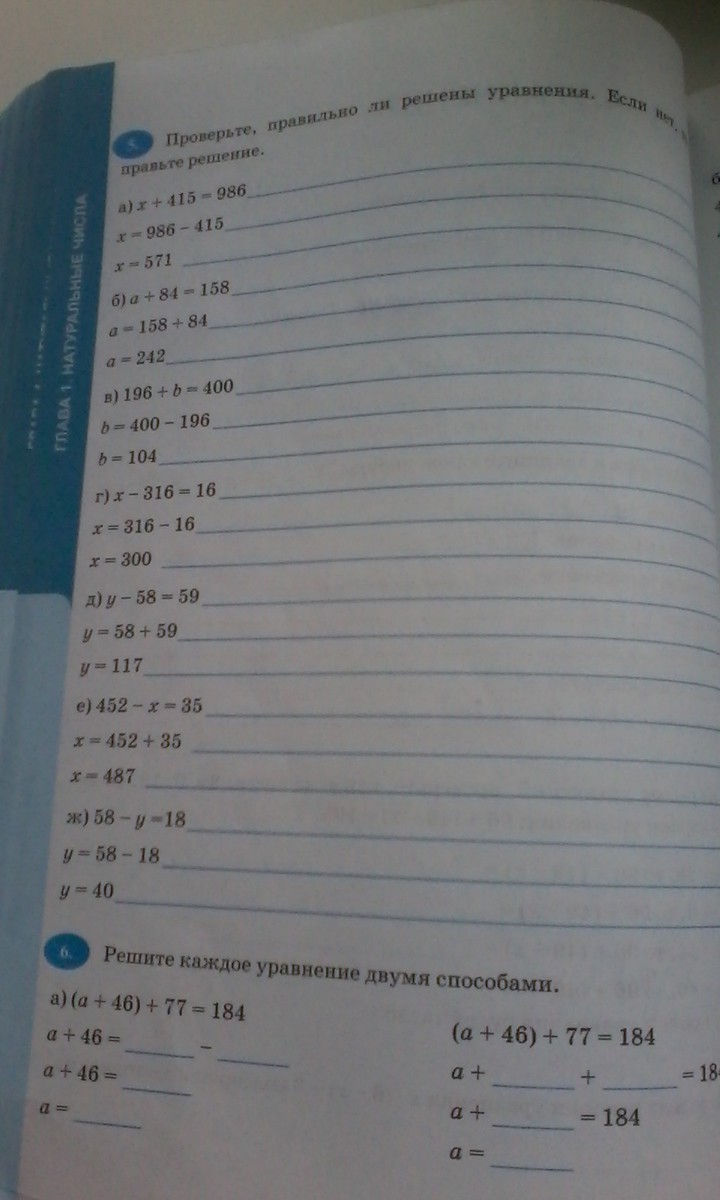 ГЛАВА 1. НАТУРАЛЬНЫЕ ЧИСЛА
5. Проверьте, правильно ли решены уравнения. Если нет,
правьте решение.
а) x + 415 = 986
x = 986 − 415
x = 571
б) a + 84 = 158
a = 158 + 84
a = 242
в) 196 + b = 400
b = 400 − 196
b = 104
г) x − 316 = 16
x = 316 − 16
x = 300
д) y − 58 = 59
y = 58 + 59
y = 117
е) 452 − x = 35
x = 452 + 35
x = 487
ж) 58 − y =18
y = 58 − 18
y = 40
6. Решите каждое уравнение двумя способами.
а) (a + 46) + 77 = 184
a + 46 = ______ − ______
a + 46 = ______
a = ______
(a + 46) + 77 = 184
a + ______ + ______ = 18
a + ______ = 184
a = ______